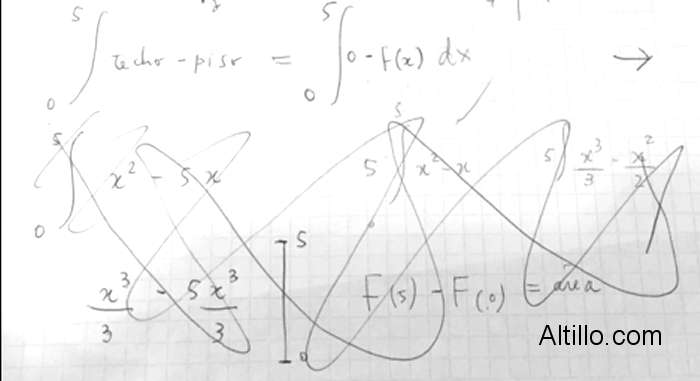 ∫₀⁵ techo - piso = ∫₀⁵ 0 - F(x) dx →
∫₀⁵ x² - 5x 5 ∫ x² - x 5 x³/3 - x²/2
x³/3 - 5x³/3 |₀⁵ F(5) - F(0) = área
Altillo.com